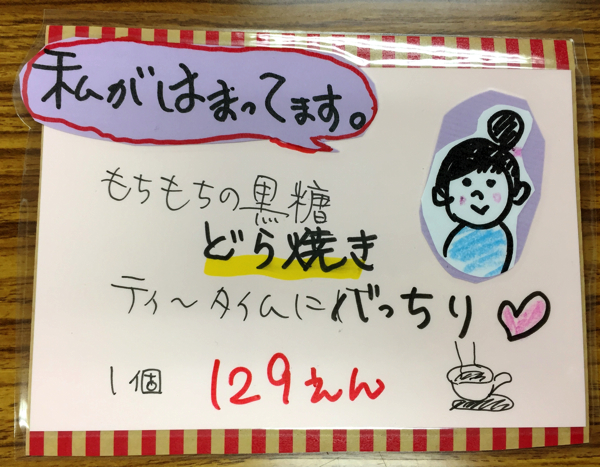 私がはまってます。
もちもちの黒糖
どら焼き
ティ～タイムにばっちり
1個 129えん